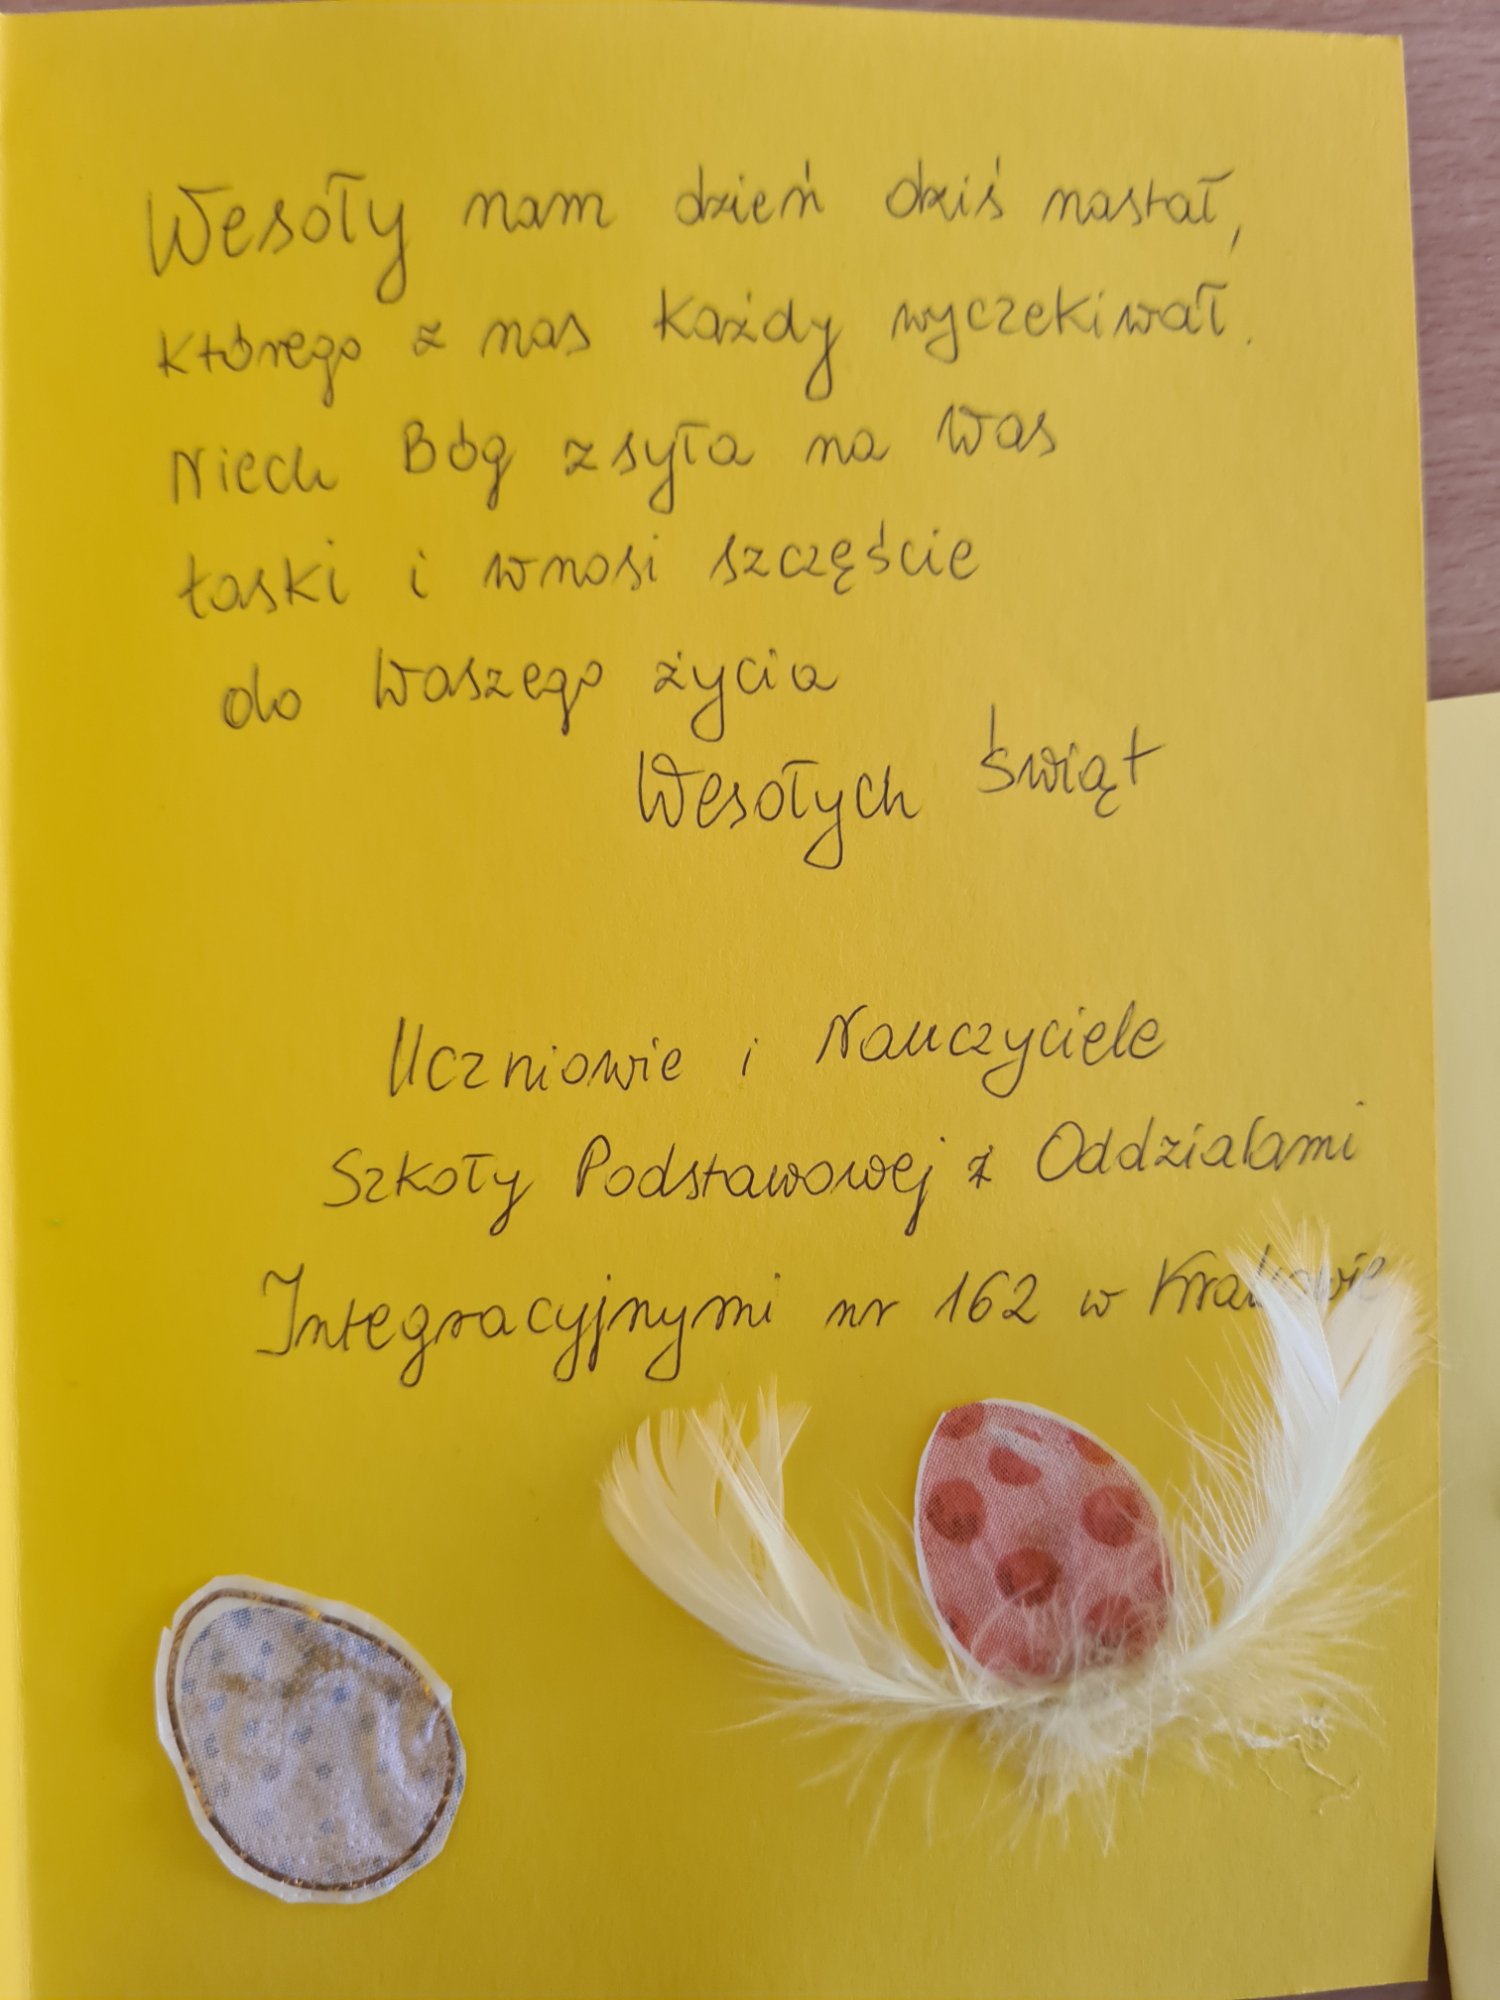 Wesoły nam dzień dziś nastał,
którego z nas każdy wyczekiwał.
Niech Bóg zsyła na Was
łaski i wnosi szczęście
do Waszego życia
Wesołych Świąt
Uczniowie i Nauczyciele
Szkoły Podstawowej z Oddzialami
Integracyjnymi nr 162 w Krakowie